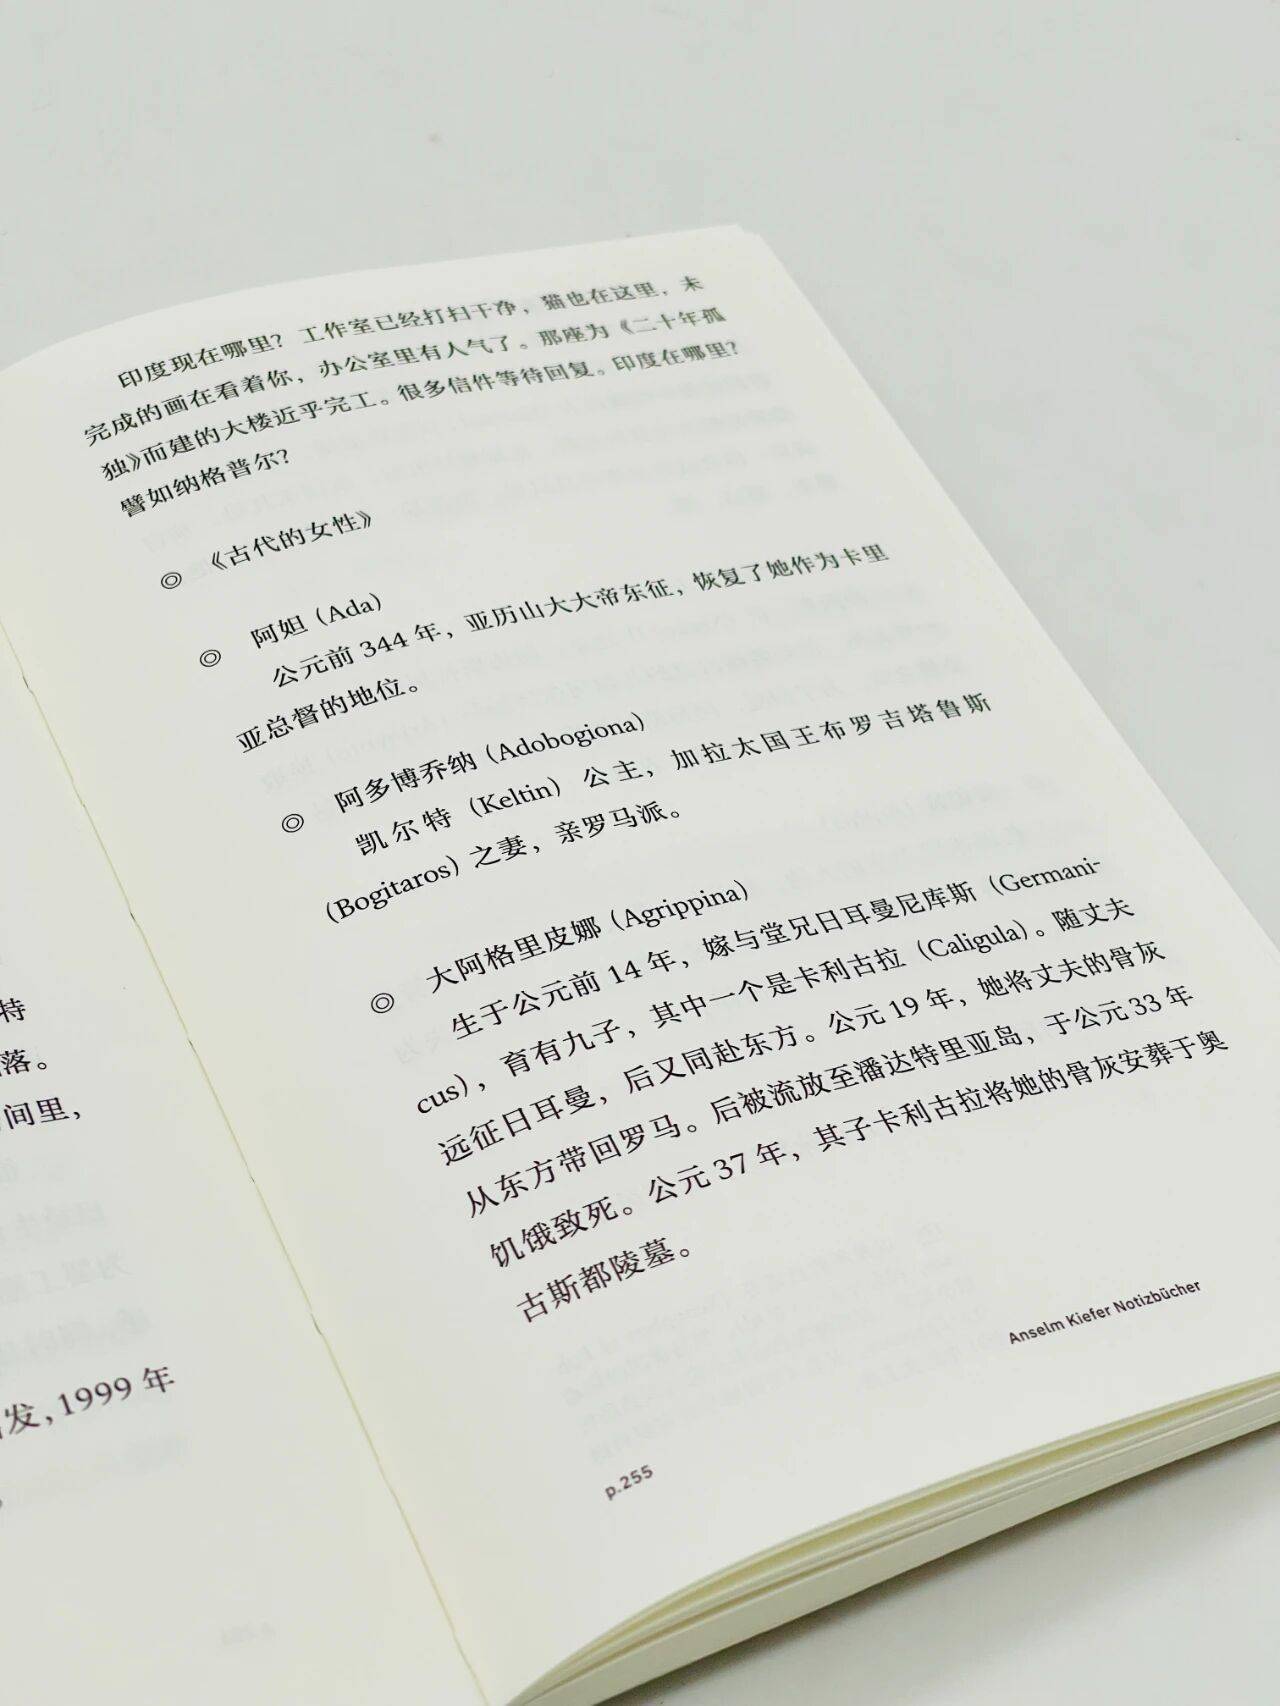 特
落。
间里，
发，1999 年
印度现在哪里？工作室已经打扫干净，猫也在这里，未
完成的画在看着你，办公室里有人气了。那座为《二十年孤
独》而建的大楼近乎完工。很多信件等待回复。印度在哪里？
譬如纳格普尔？
◎ 《古代的女性》
◎ 阿妲（Ada）
公元前 344 年，亚历山大大帝东征，恢复了她作为卡里
亚总督的地位。
◎ 阿多博乔纳（Adobogiona）
凯尔特（Keltin）公主，加拉太国王布罗吉塔鲁斯
（Bogitaros）之妻，亲罗马派。
◎ 大阿格里皮娜（Agrippina）
生于公元前 14 年，嫁与堂兄日耳曼尼库斯（Germani-
cus），育有九子，其中一个是卡利古拉（Caligula）。随丈夫
远征日耳曼，后又同赴东方。公元 19 年，她将丈夫的骨灰
从东方带回罗马。后被流放至潘达特里亚岛，于公元 33 年
饥饿致死。公元 37 年，其子卡利古拉将她的骨灰安葬于奥
古斯都陵墓。
Anselm Kiefer Notizbücher
p.255